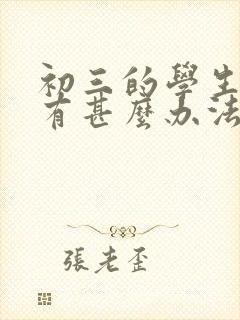 初三的學生
有甚麼办法
張老歪